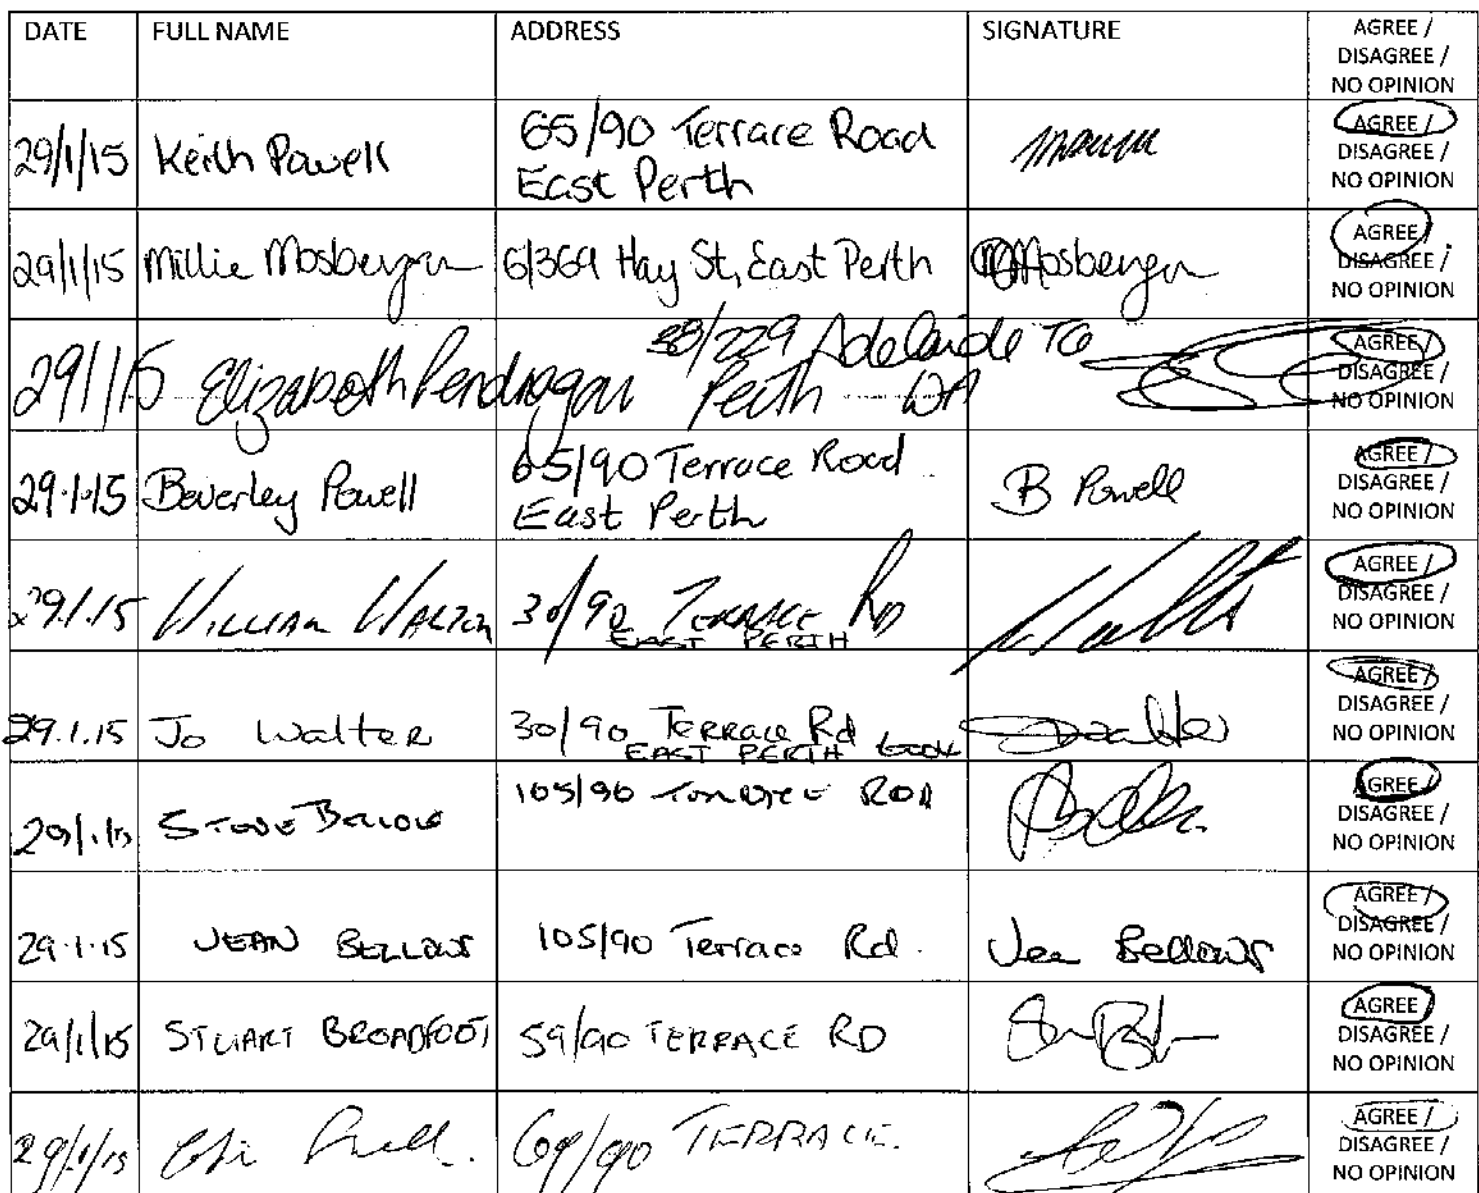 DATE FULL NAME ADDRESS SIGNATURE AGREE /
DISAGREE /
NO OPINION
29/1/15 Keith Powell 65/90 Terrace Road
East Perth
AGREE /
DISAGREE /
NO OPINION
29/1/15 Millie Mosbergen 6/369 Hay St, East Perth MMosbergen
AGREE /
DISAGREE /
NO OPINION
29/1/15 Elizabeth Pendragon 38/229 Adelaide TCE
Perth WA
AGREE /
DISAGREE /
NO OPINION
29.1.15 Beverley Powell 65/90 Terrace Road
East Perth
B Powell
AGREE /
DISAGREE /
NO OPINION
29.1.15 WILLIAM 30/90 TERRACE RD
EAST PERTH
AGREE /
DISAGREE /
NO OPINION
29.1.15 Jo Walter 30/90 Terrace Rd
EAST PERTH 6004
AGREE /
DISAGREE /
NO OPINION
29/1/15 105/90
AGREE /
DISAGREE /
NO OPINION
29.1.15 JEAN BELLOWS 105/90 Terrace Rd. Jean Bellows
AGREE /
DISAGREE /
NO OPINION
29/1/15 STUART BROADFOOT 59/90 TERRACE RD
AGREE /
DISAGREE /
NO OPINION
29/1/15 TERRACE.
AGREE /
DISAGREE /
NO OPINION